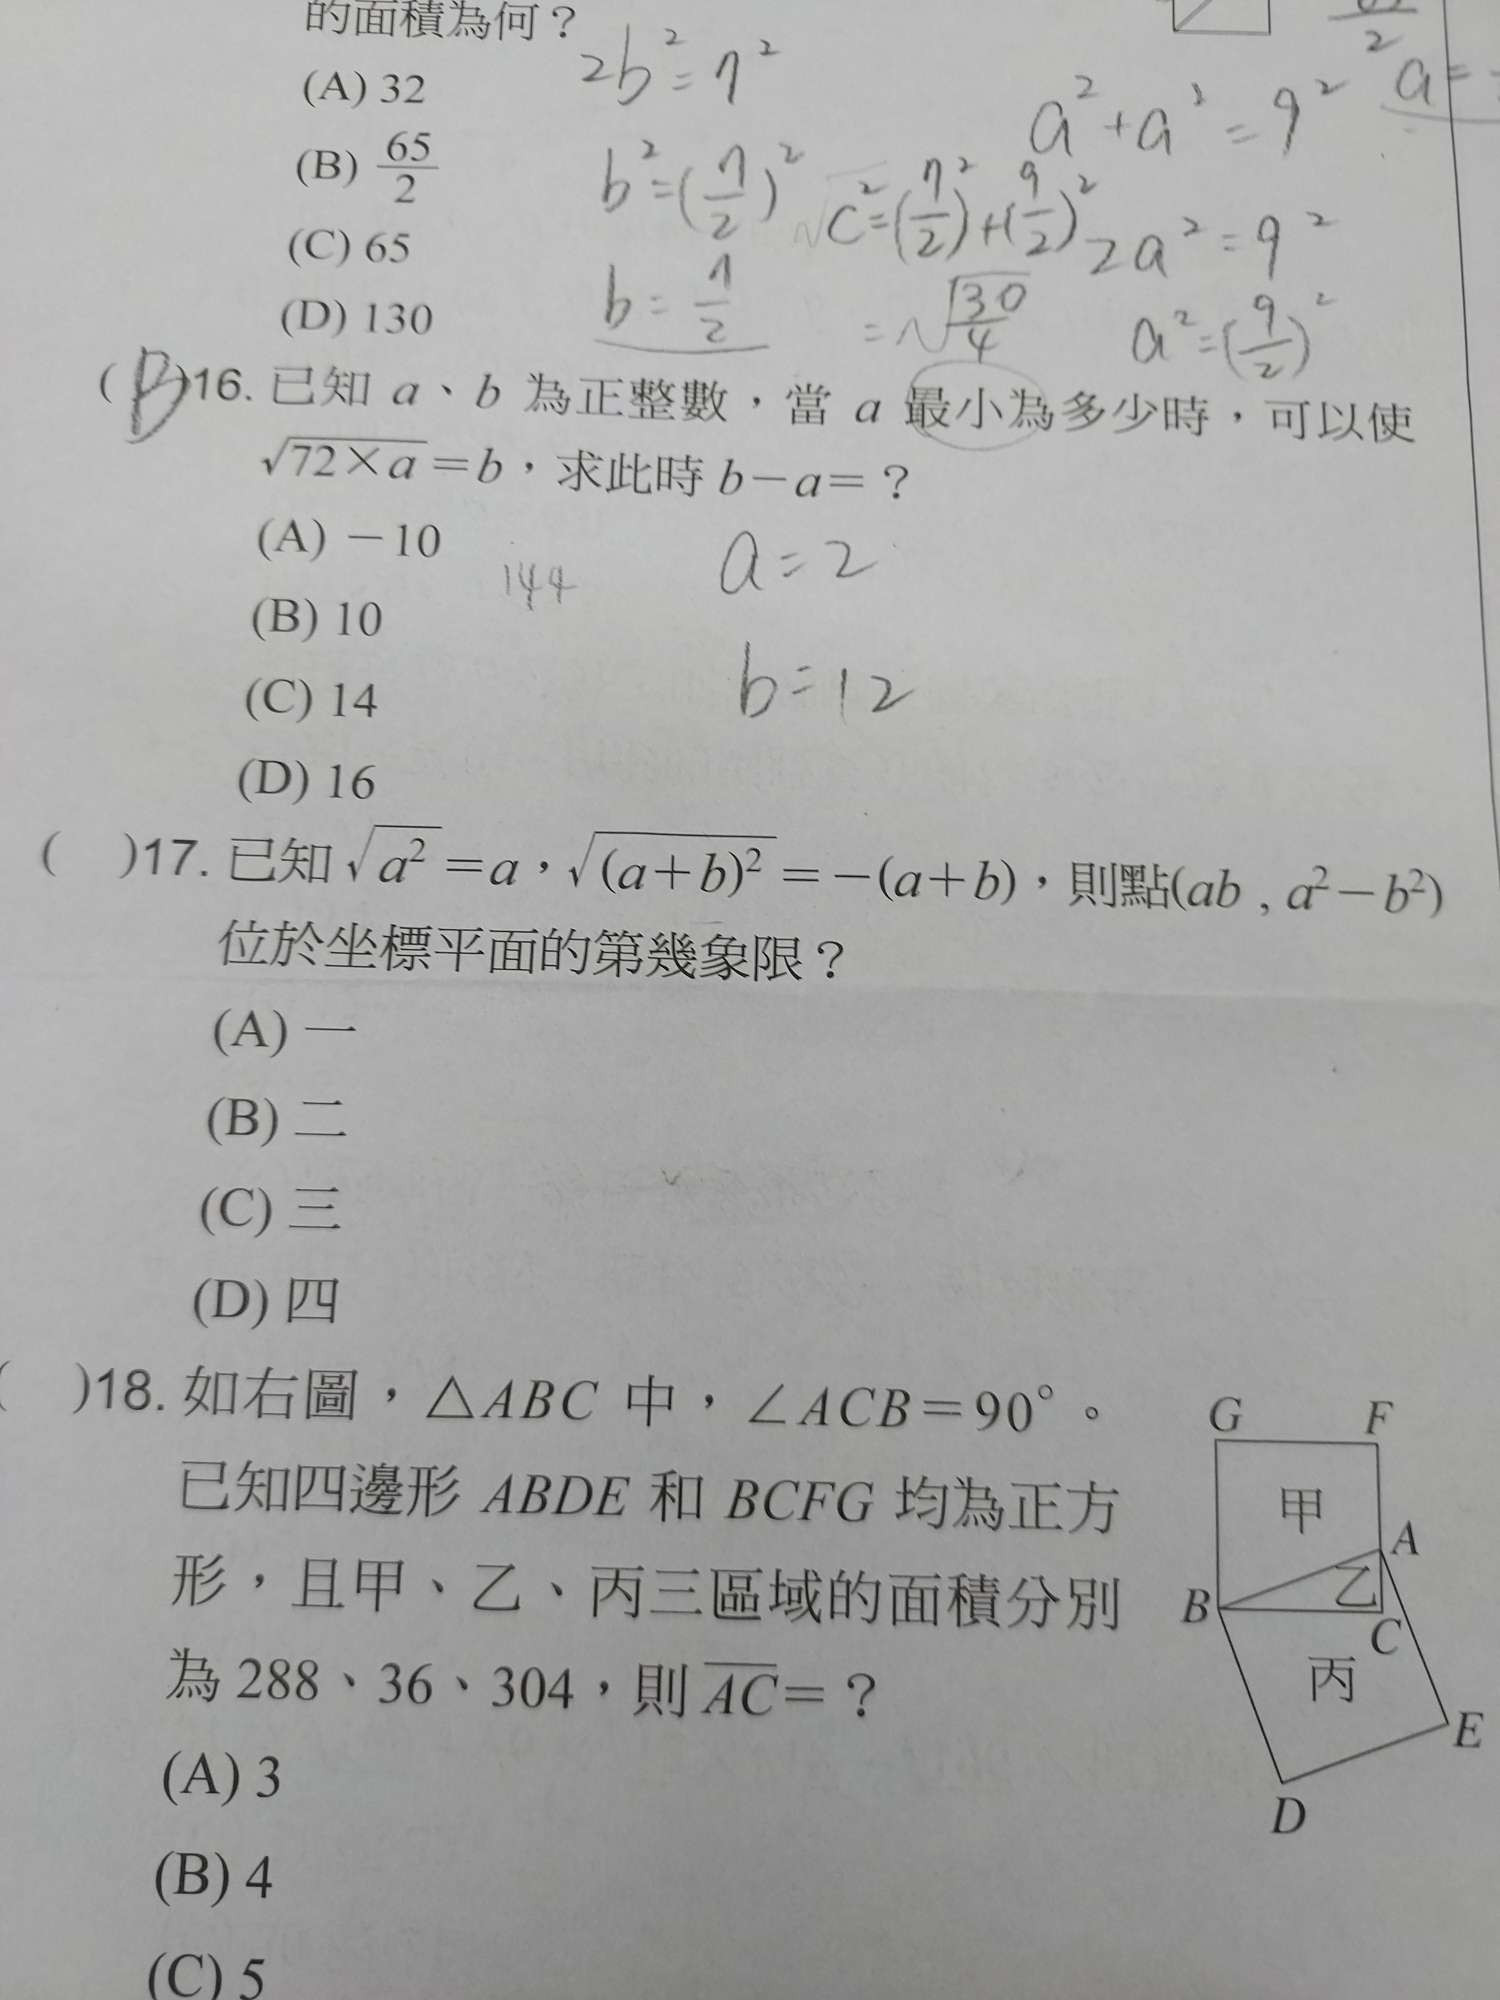 的面積為何？
(A) 32
(B) 65/2
(C) 65
(D) 130
2b²=7²
b²=(7/2)²
b=7/2
c²=(7/2)²+(9/2)²
=√(130/4)
a²+a²=9²
2a²=9²
a²=(9/2)²
a=
(B)16. 已知 a、b 為正整數，當 a 最小為多少時，可以使
√72×a=b，求此時 b－a=？
(A) －10
(B) 10
(C) 14
(D) 16
144
a=2
b=12
( )17. 已知√a²=a，√(a+b)²=－(a+b)，則點(ab , a²－b²)
位於坐標平面的第幾象限？
(A) 一
(B) 二
(C) 三
(D) 四
( )18. 如右圖，△ABC 中，∠ACB=90°。
已知四邊形 ABDE 和 BCFG 均為正方
形，且甲、乙、丙三區域的面積分別
為 288、36、304，則 AC=？
(A) 3
(B) 4
(C) 5
G F
甲
A
乙
B
C
丙
E
D